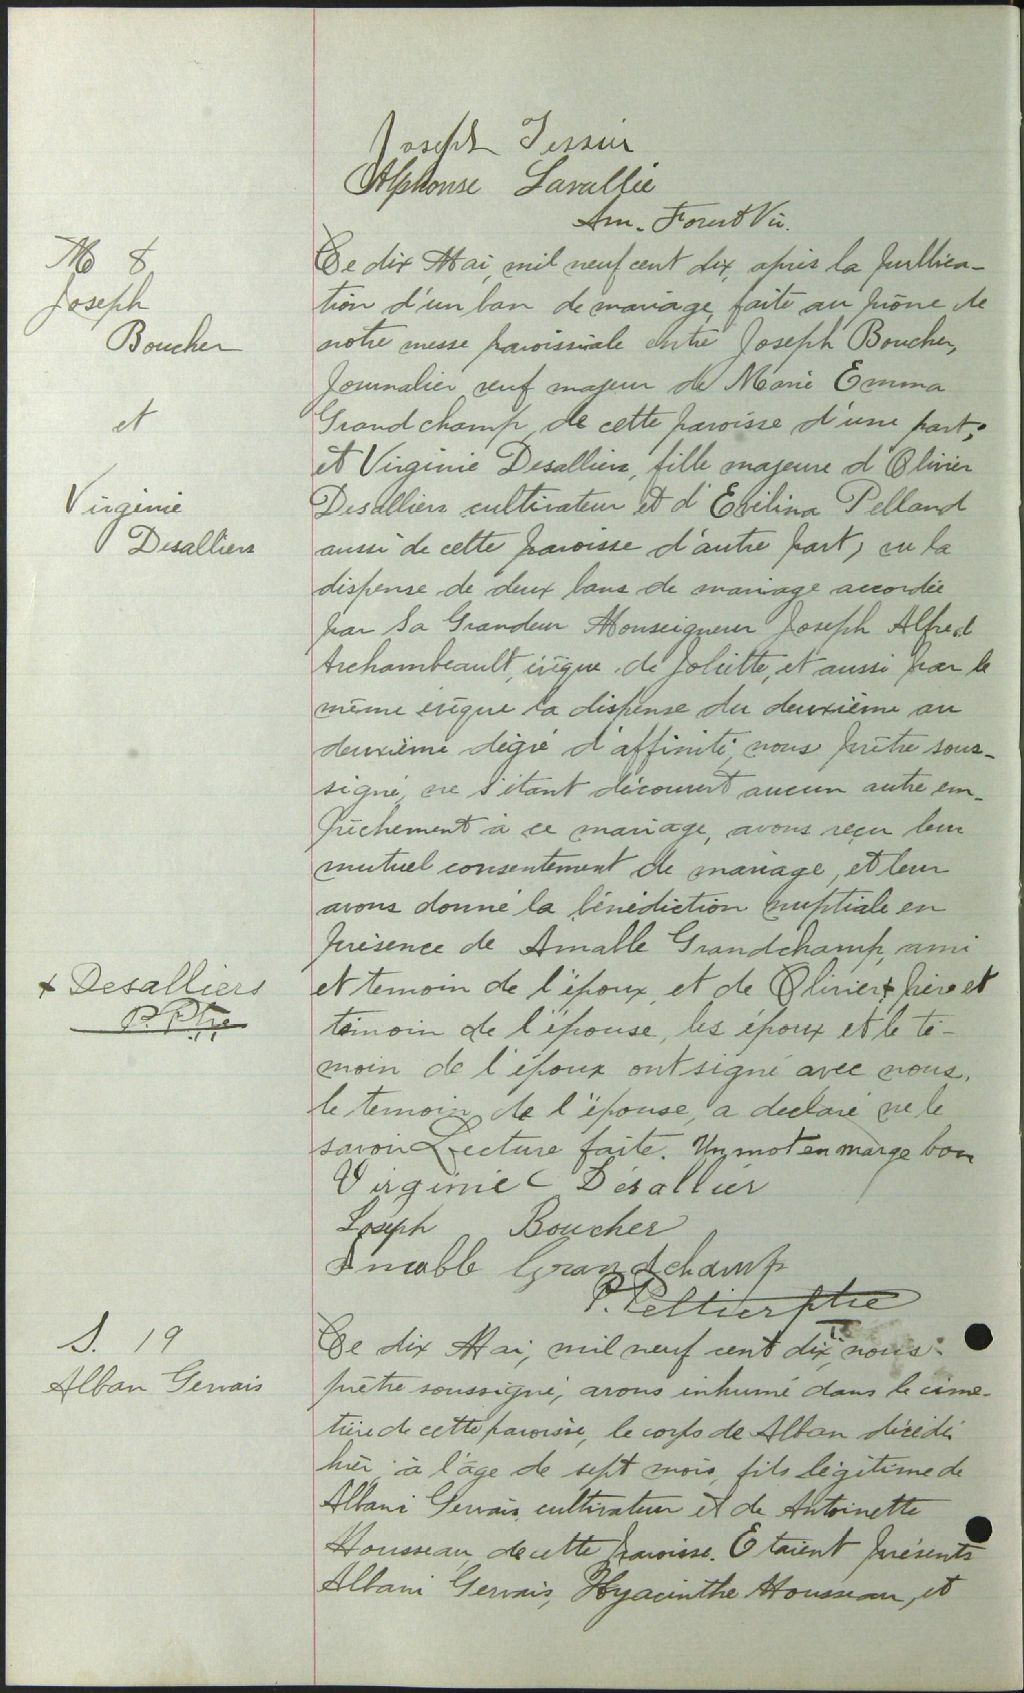 Joseph Tessier
Alphonse Lavallée
Am. Forest Vic.
M 8
Joseph
Boucher
et
Virginie
Desalliers
Ce dix Mai, mil neuf cent dix, après la publica-
tion d'un ban de mariage, faite au prône de
notre messe paroissiale entre Joseph Boucher,
Journalier veuf majeur de Marie Emma
Grandchamp, de cette paroisse d'une part;
et Virginie Desalliers, fille majeure d'Olivier
Desalliers cultivateur et d'Evilina Pelland
aussi de cette paroisse d'autre part; vu la
dispense de deux bans de mariage accordée
par Sa Grandeur Monseigneur Joseph Alfred
Archambeault, évêque de Joliette, et aussi par le
même évêque la dispense du deuxième au
deuxième dégré d'affinité, nous prêtre sous-
signé, ne s'étant découvert aucun autre em-
pêchement à ce mariage, avons reçu leur
mutuel consentement de mariage, et leur
avons donné la bénédiction nuptiale en
présence de Amable Grandchamp, ami
et temoin de l'époux, et de Olivier + frère et
témoin de l'épouse, les époux et le té-
moin de l'époux ont signé avec nous.
le temoin de l'épouse, a declaré ne le
savoir Lecture faite. Un mot en marge bon
+ Desalliers
P. P. ptre
Virginie Désallier
Joseph Boucher
Amable Grandchamp
P. Peltier ptre
S. 19
Alban Gervais
Ce dix Mai, mil neuf cent dix, nous
prêtre soussigné, avons inhumé dans le cime-
tière de cette paroisse, le corps de Alban décédé
hier, à l'âge de sept mois, fils légitime de
Albani Gervais, cultivateur et de Antoinette
Housseau, de cette paroisse. Etaient présents
Albani Gervais, Hyacinthe Housseau, et